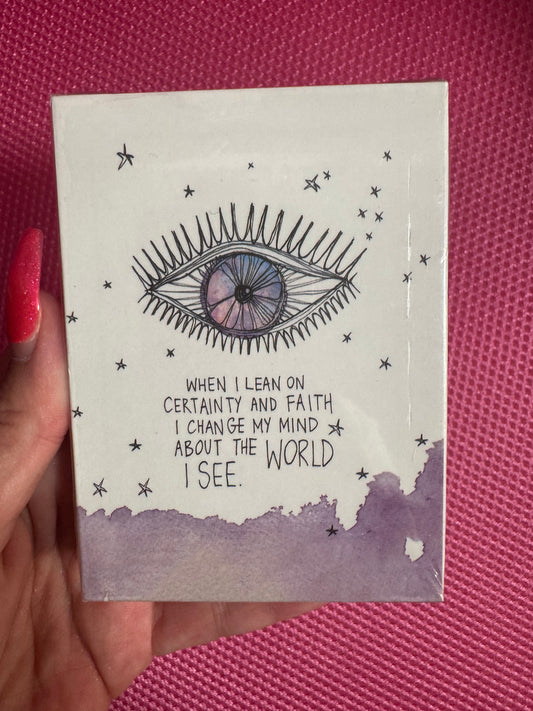 WHEN I LEAN ON
CERTAINTY AND FAITH
I CHANGE MY MIND
ABOUT THE WORLD
I SEE.